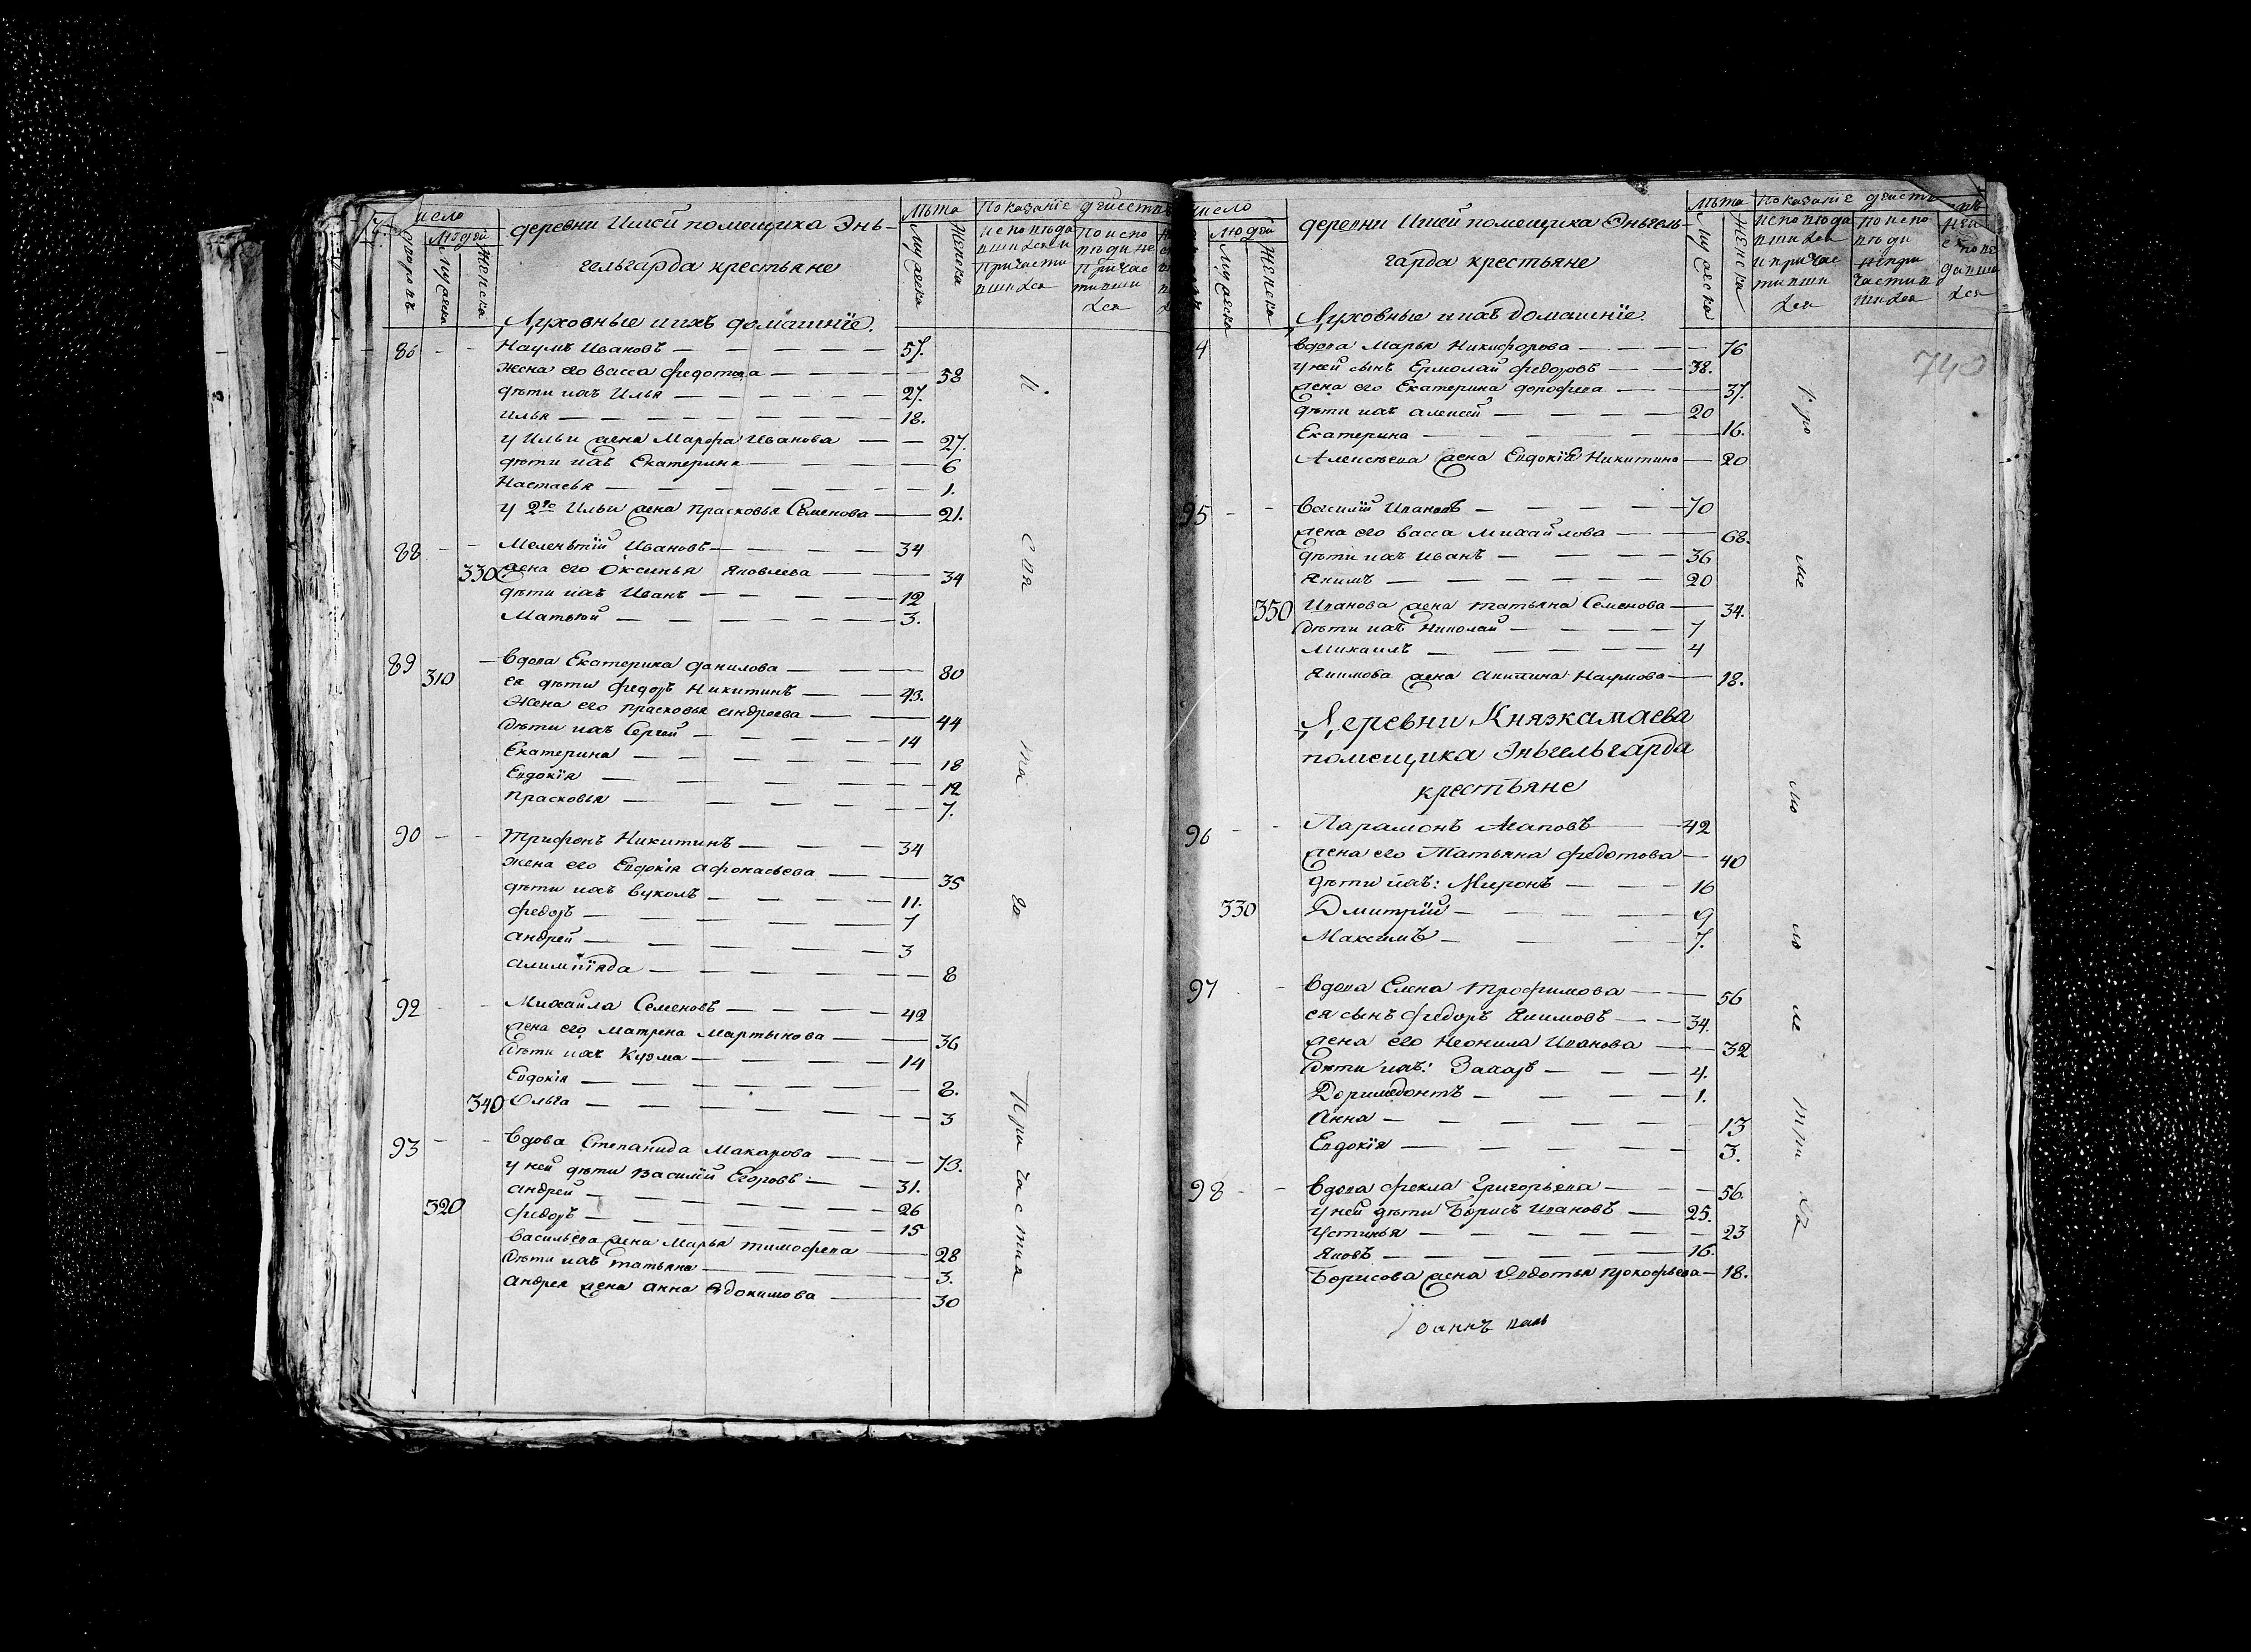 число
Людей
дворовъ
Мужеска
Женска
деревни Ишей помещика Энь-
гельгарда крестьяне
Духовные и ихъ домашнїе.
Лѣта
Мужеска
Женска
Показанїе действ
исповѣда
вшихся и
причасти
вшихся
По испо
вѣди не
причас
тивши
хся
86 - - Наумъ Ивановъ — 57.
жена его Васса Федотова — 58
дѣти ихъ Илья — 27.
Илья — 18.
у Ильи жена Марфа Иванова — 27.
дѣти ихъ Екатерина — 6
Настасья — 1.
у 2го Ильи жена Прасковья Семенова — 21.
88 - - Мелентїй Ивановъ — 34
330 жена его Оксинья Яковлева — 34
дѣти ихъ Иванъ — 12
Матвей — 3.
89 310 - Вдова Екатерина Данилова — 80
ея дѣти Федоръ Никитинъ — 43.
Жена его Прасковья Андреева — 44
дѣти ихъ Сергей — 14
Екатерина — 18
Евдокїя — 12
Прасковья — 7.
90 - - Трифонъ Никитинъ — 34
жена его Евдокїя Афонасьева — 35
дѣти ихъ Вуколъ — 11.
Федоръ — 7
Андрей — 3
Алимпїяда — 8
92 - - Михайла Семеновъ — 42
жена его Матрена Мартынова — 36
дѣти ихъ Кузма — 14
Евдокїя — 8.
340 Ольга — 3
93 - - Вдова Степанида Макарова — 73.
у ней дѣти Василїй Егоровъ — 31.
Андрей — 26
320 Федоръ — 15
Васильева жена Марья Тимофева — 28
дѣти ихъ Татьяна — 3.
Андрея жена Анна Евдокимова — 30
Святаго Причастия
число
Людей
Мужеска
Женска
деревни Ишей помещика Эньгель-
гарда крестьяне
Духовные и ихъ домашнїе.
Лѣта
Мужеска
Женска
Показанїе действ
исповѣда
вшихся
и причас
тивши
хся
по испо
вѣди
непри
частив
шихся
740
4 Вдова Марья Никифорова — 76
у ней сынъ Ермолай Федоровъ — 38.
жена его Екатерина Дорофева — 37.
дѣти ихъ Алексей — 20
Екатерина — 16.
Алексѣева жена Евдокїя Никитина — 20
95 - - Василїй Ивановъ — 70
жена его Васса Михайлова — 68.
дѣти ихъ Иванъ — 36
Якимъ — 20
350 Иванова жена Татьяна Семенова — 34.
дѣти ихъ Николай — 7
Михаилъ — 4
Якимова жена Акилина Наумова — 18.
Деревни Князкамаева
помещика Эньгельгарда
крестьяне
96 - - Парамонъ Агаповъ — 42
жена его Татьяна Федотова — 40
дѣти ихъ: Миронъ — 16
330 Дмитрїй — 9
Максимъ — 7.
97 - Вдова Елена Трофимова — 56
ея сынъ Федоръ Якимовъ — 34.
жена его Неонила Иванова — 32
дѣти ихъ: Захаръ — 4.
Доримедонтъ — 1.
Анна — 13
Евдокїя — 3.
98 - - Вдова Фекла Григорьева — 56.
у ней дѣти Борисъ Ивановъ — 25.
Устинья — 23
Яковъ — 16.
Борисова жена Авдотья Прокофьева — 18.
Іоаннъ